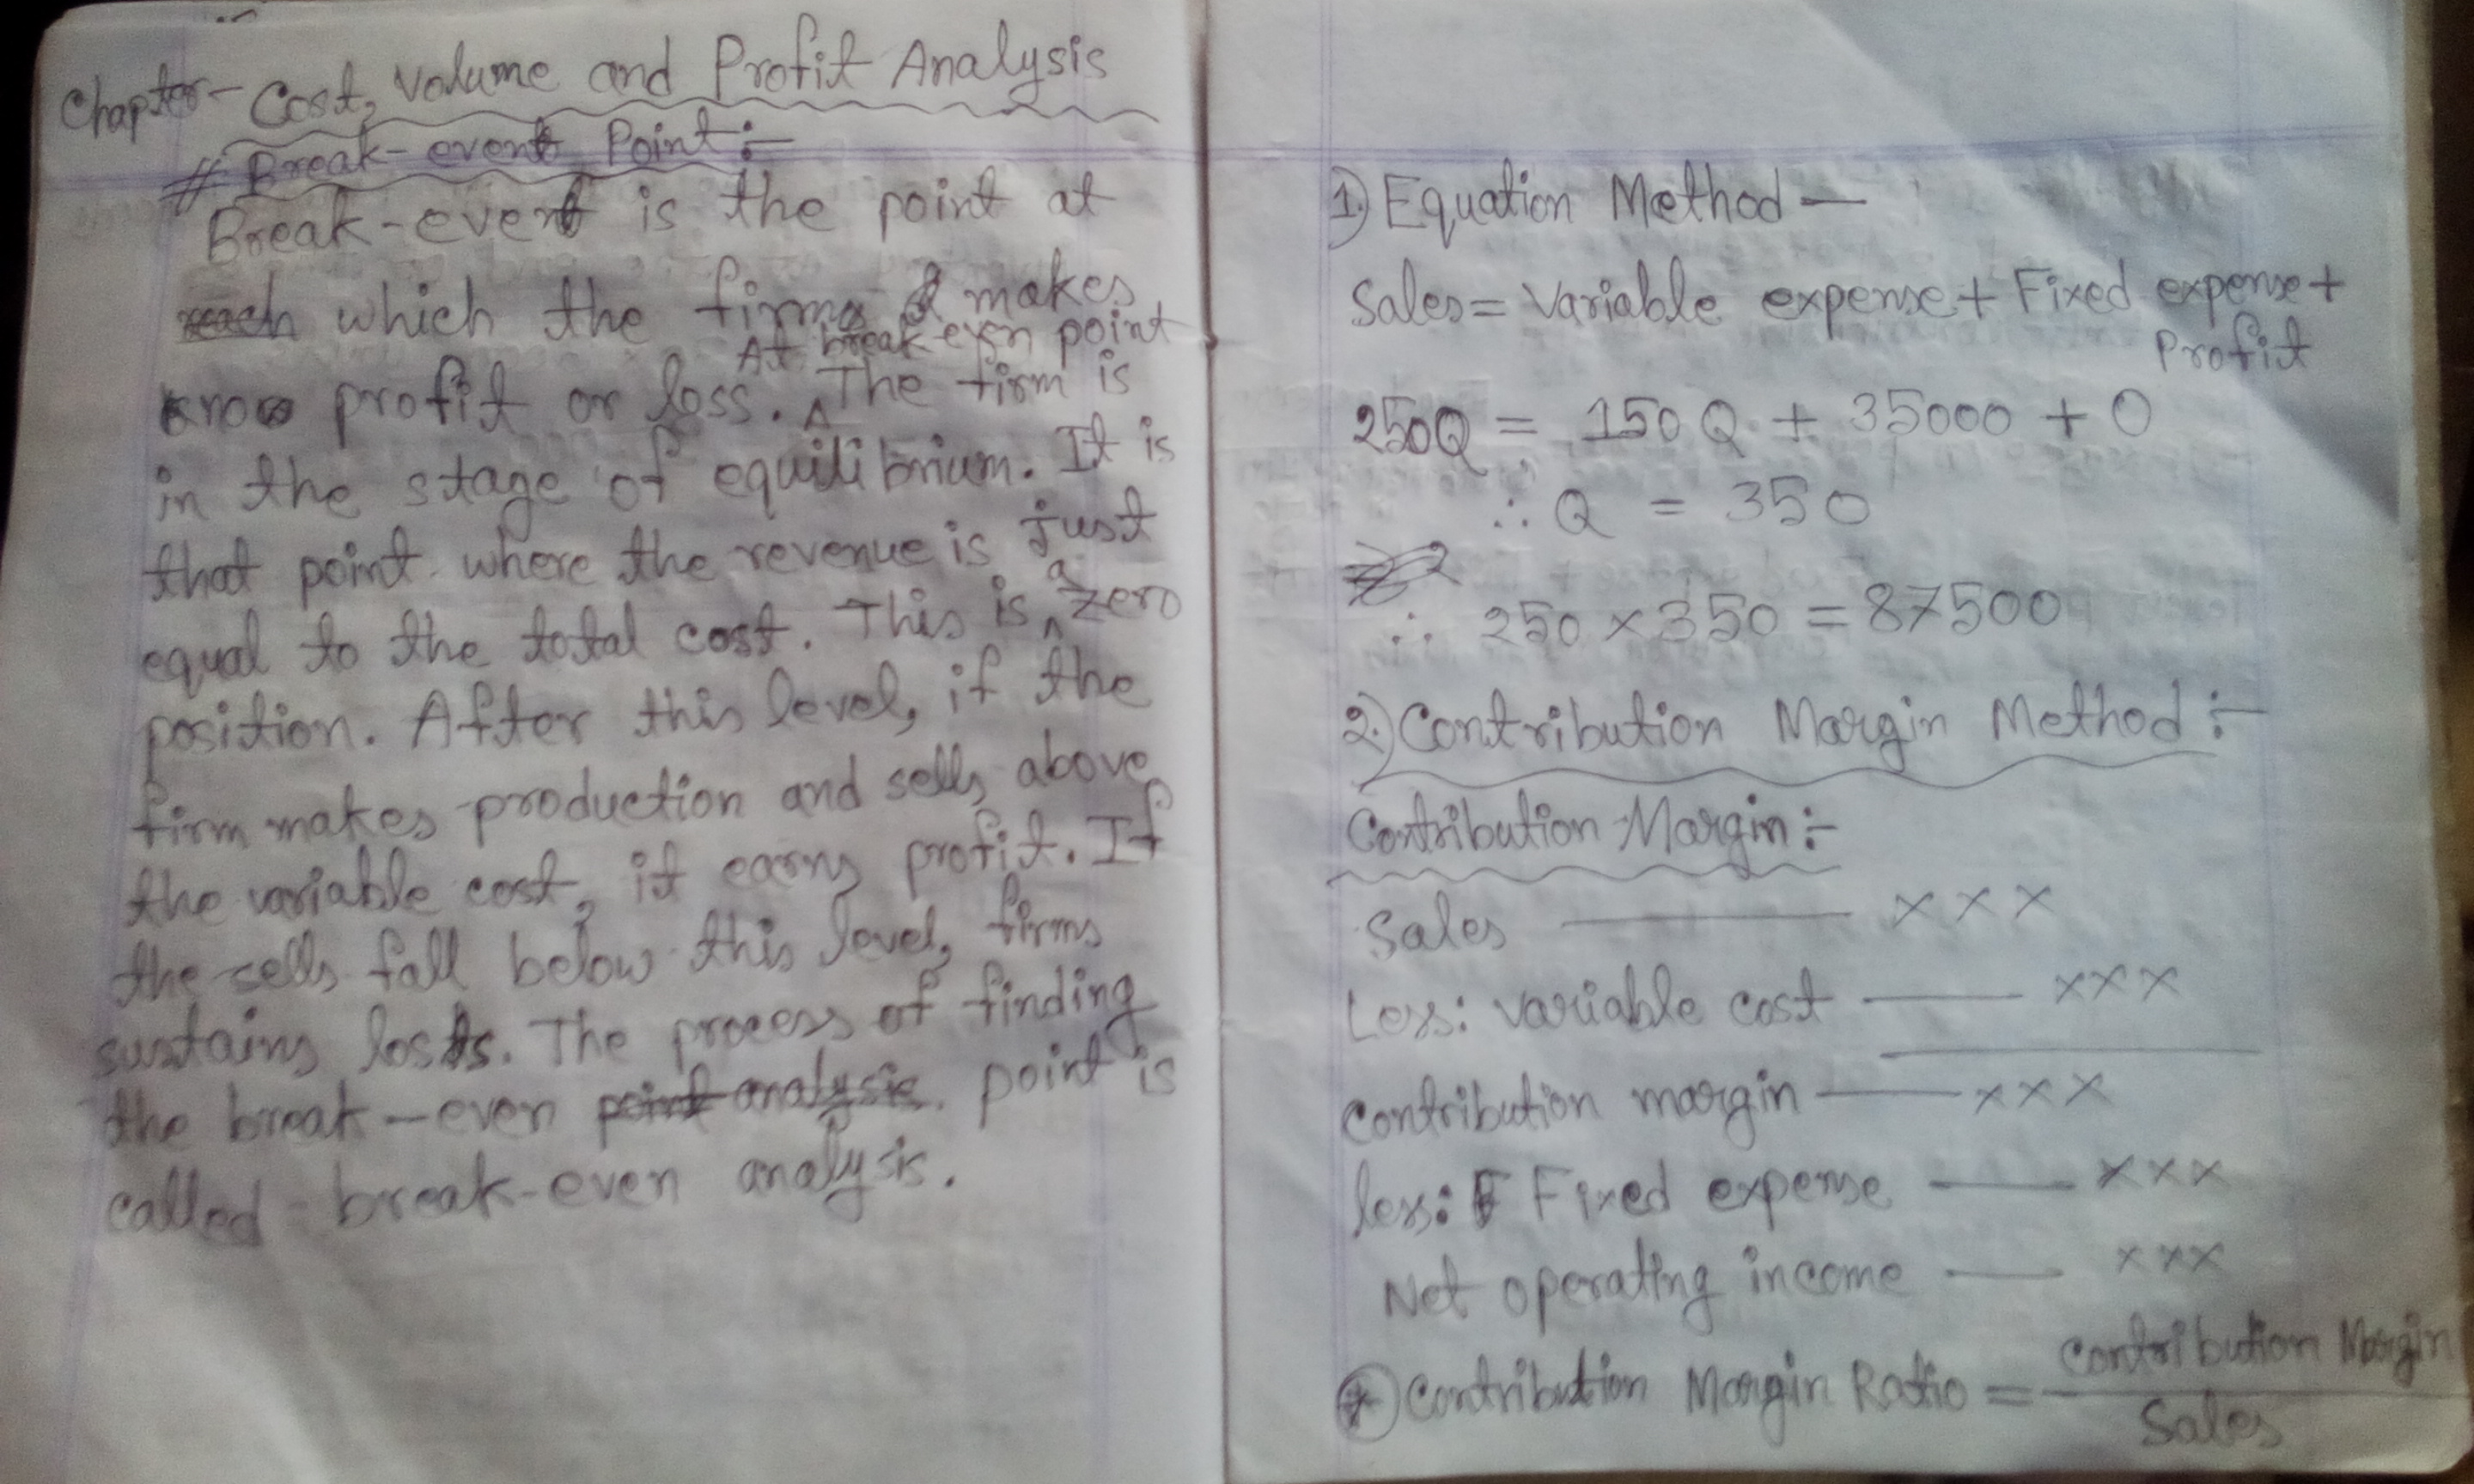 Chapter- Cost, Volume and Profit Analysis
# Break-even Point:-
Break-even is the point at
which the firm makes
no profit or loss. At break even point The firm is
in the stage of equilibrium. It is
that point where the revenue is just
equal to the total cost. This is a zero
position. After this level, if the
firm makes production and sells above
the variable cost, it earns profit. If
the sells fall below this level, firms
sustains loss. The process of finding
the break-even point is
called - break-even analysis.
1) Equation Method —
Sales = Variable expense + Fixed expense +
Profit
250Q = 150Q + 35000 + 0
∴ Q = 350
∴ 250 × 350 = 87500
2.) Contribution Margin Method :-
Contribution Margin :-
Sales —— × × ×
Less: variable cost —— × × ×
Contribution margin —— × × ×
less: Fixed expense —— × × ×
Net operating income —— × × ×
Contribution Margin Ratio = Contribution Margin
Sales